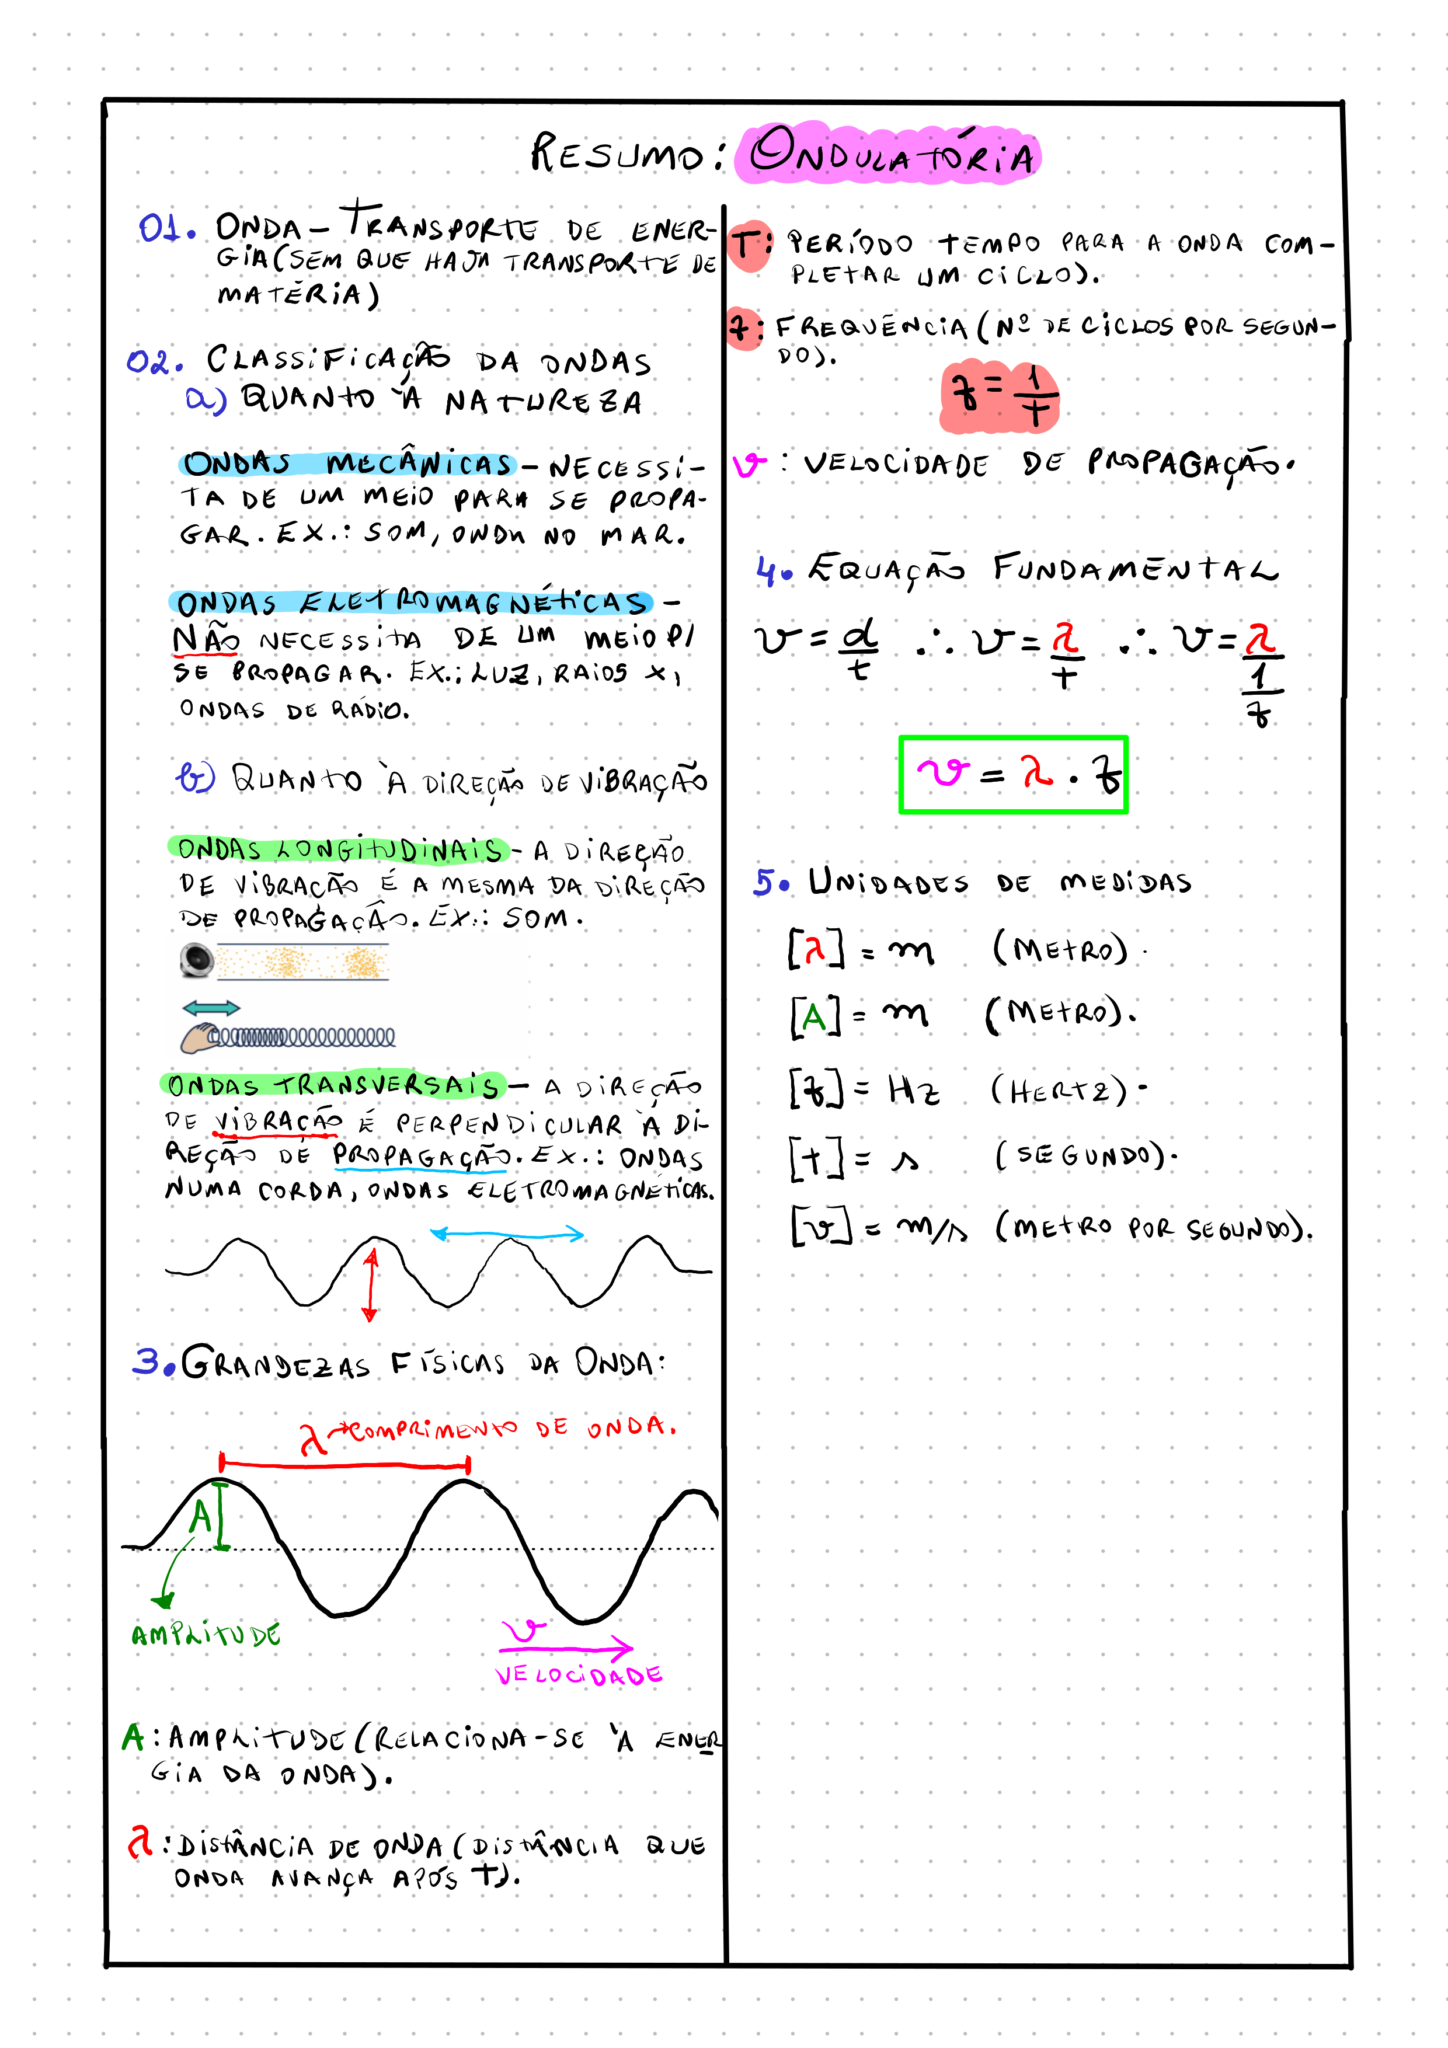 RESUMO: ONDULATÓRIA
01. ONDA - TRANSPORTE DE ENER-
GIA (SEM QUE HAJA TRANSPORTE DE
MATÉRIA)
02. CLASSIFICAÇÃO DA ONDAS
a) QUANTO À NATUREZA
ONDAS MECÂNICAS - NECESSI-
TA DE UM MEIO PARA SE PROPA-
GAR. EX.: SOM, ONDA NO MAR.
ONDAS ELETROMAGNÉTICAS -
NÃO NECESSITA DE UM MEIO P/
SE PROPAGAR. EX.: LUZ, RAIOS X,
ONDAS DE RÁDIO.
b) QUANTO À DIREÇÃO DE VIBRAÇÃO
ONDAS LONGITUDINAIS - A DIREÇÃO
DE VIBRAÇÃO É A MESMA DA DIREÇÃO
DE PROPAGAÇÃO. EX.: SOM.
ONDAS TRANSVERSAIS - A DIREÇÃO
DE VIBRAÇÃO É PERPENDICULAR À DI-
REÇÃO DE PROPAGAÇÃO. EX.: ONDAS
NUMA CORDA, ONDAS ELETROMAGNÉTICAS.
3. GRANDEZAS FÍSICAS DA ONDA:
λ → COMPRIMENTO DE ONDA.
A
AMPLITUDE
v
VELOCIDADE
A: AMPLITUDE (RELACIONA-SE À ENER
GIA DA ONDA).
λ: DISTÂNCIA DE ONDA (DISTÂNCIA QUE
ONDA AVANÇA APÓS T).
T: PERÍODO TEMPO PARA A ONDA COM-
PLETAR UM CICLO).
f: FREQUÊNCIA (Nº DE CICLOS POR SEGUN-
DO).
f = 1/T
v: VELOCIDADE DE PROPAGAÇÃO.
4. EQUAÇÃO FUNDAMENTAL
v = d/t ∴ v = λ/T ∴ v = λ/(1/f)
v = λ . f
5. UNIDADES DE MEDIDAS
[λ] = m (METRO).
[A] = m (METRO).
[f] = Hz (HERTZ).
[t] = s (SEGUNDO).
[v] = m/s (METRO POR SEGUNDO).